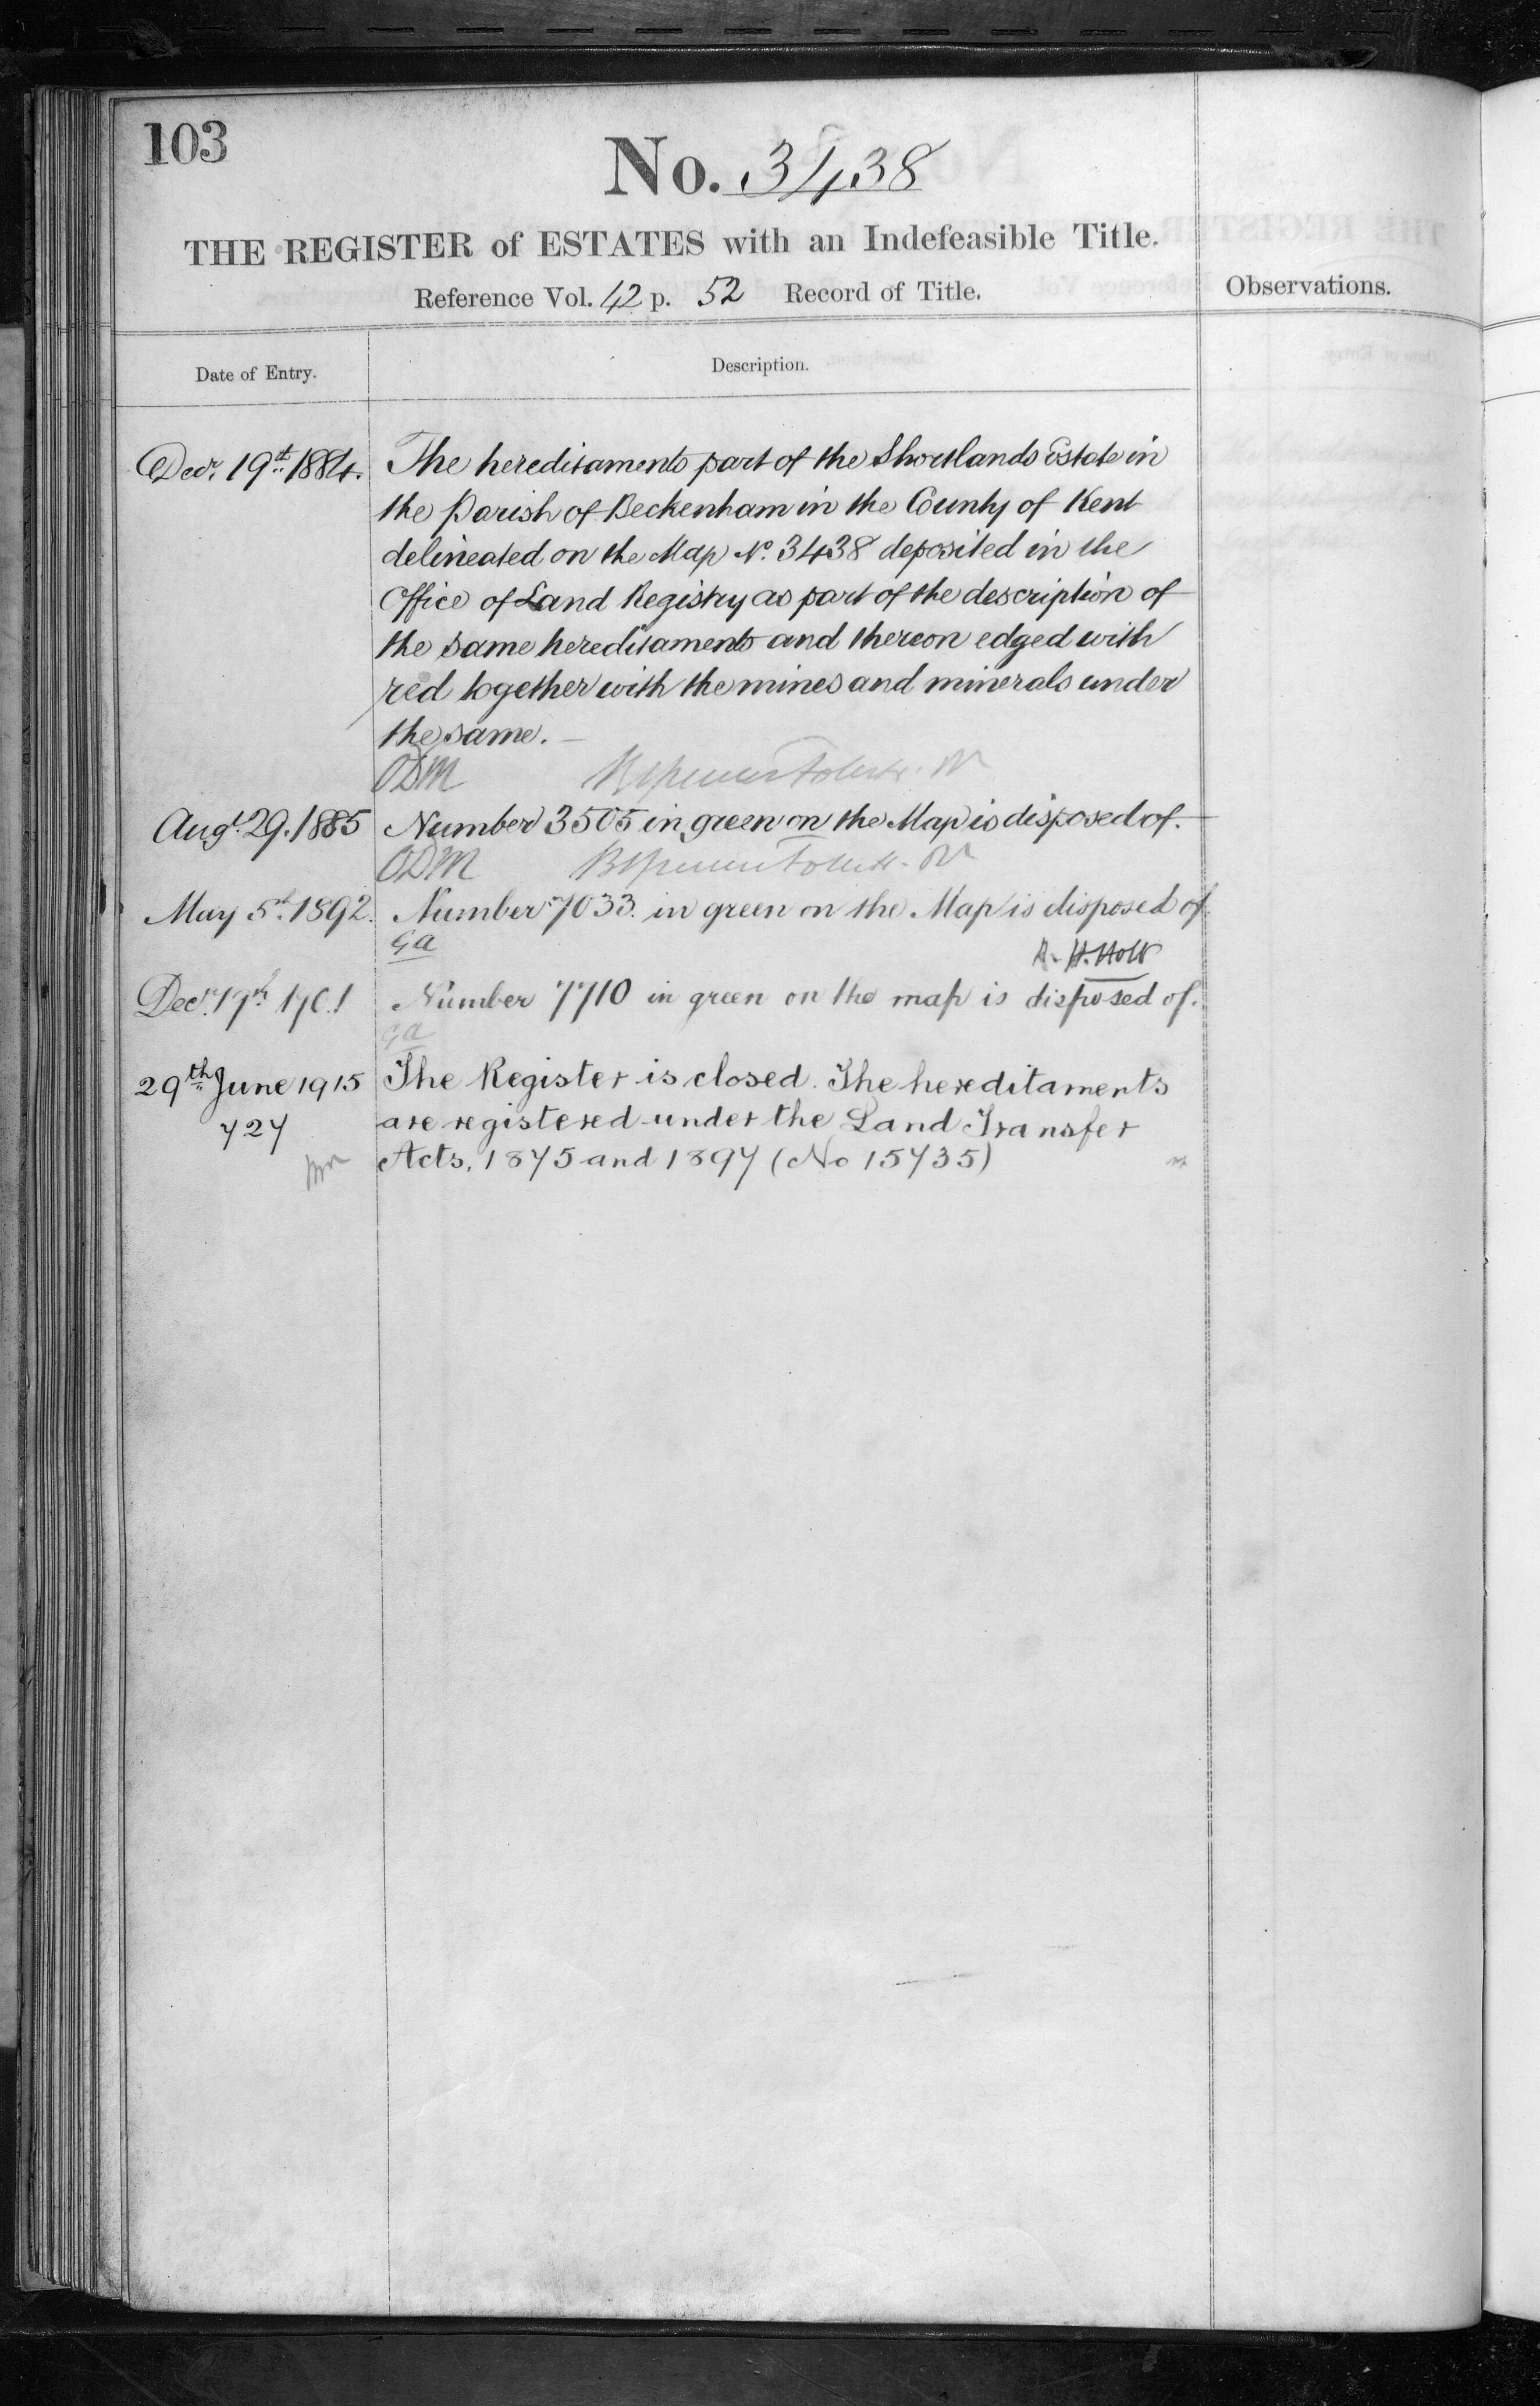 103
No. 3438
THE REGISTER of ESTATES with an Indefeasible Title.
Reference Vol. 42 p. 52 Record of Title.
Observations.
Date of Entry.
Description.
Decr. 19th 1884. The hereditaments part of the Shortlands Estate in
the Parish of Beckenham in the County of Kent
delineated on the Map No. 3438 deposited in the
Office of Land Registry as part of the description of
the same hereditaments and thereon edged with
red together with the mines and minerals under
the same. —
ODM
Augt. 29. 1885 Number 3505 in green on the Map is disposed of.
ODM
May 5th. 1892. Number 7033. in green on the Map is disposed of.
GA
R. H. Holt
Decr. 17th 1901 Number 7710 in green on the map is disposed of.
GA
29th June 1915 The Register is closed. The hereditaments
727 are registered under the Land Transfer
Acts, 1875 and 1897 (No 15735)